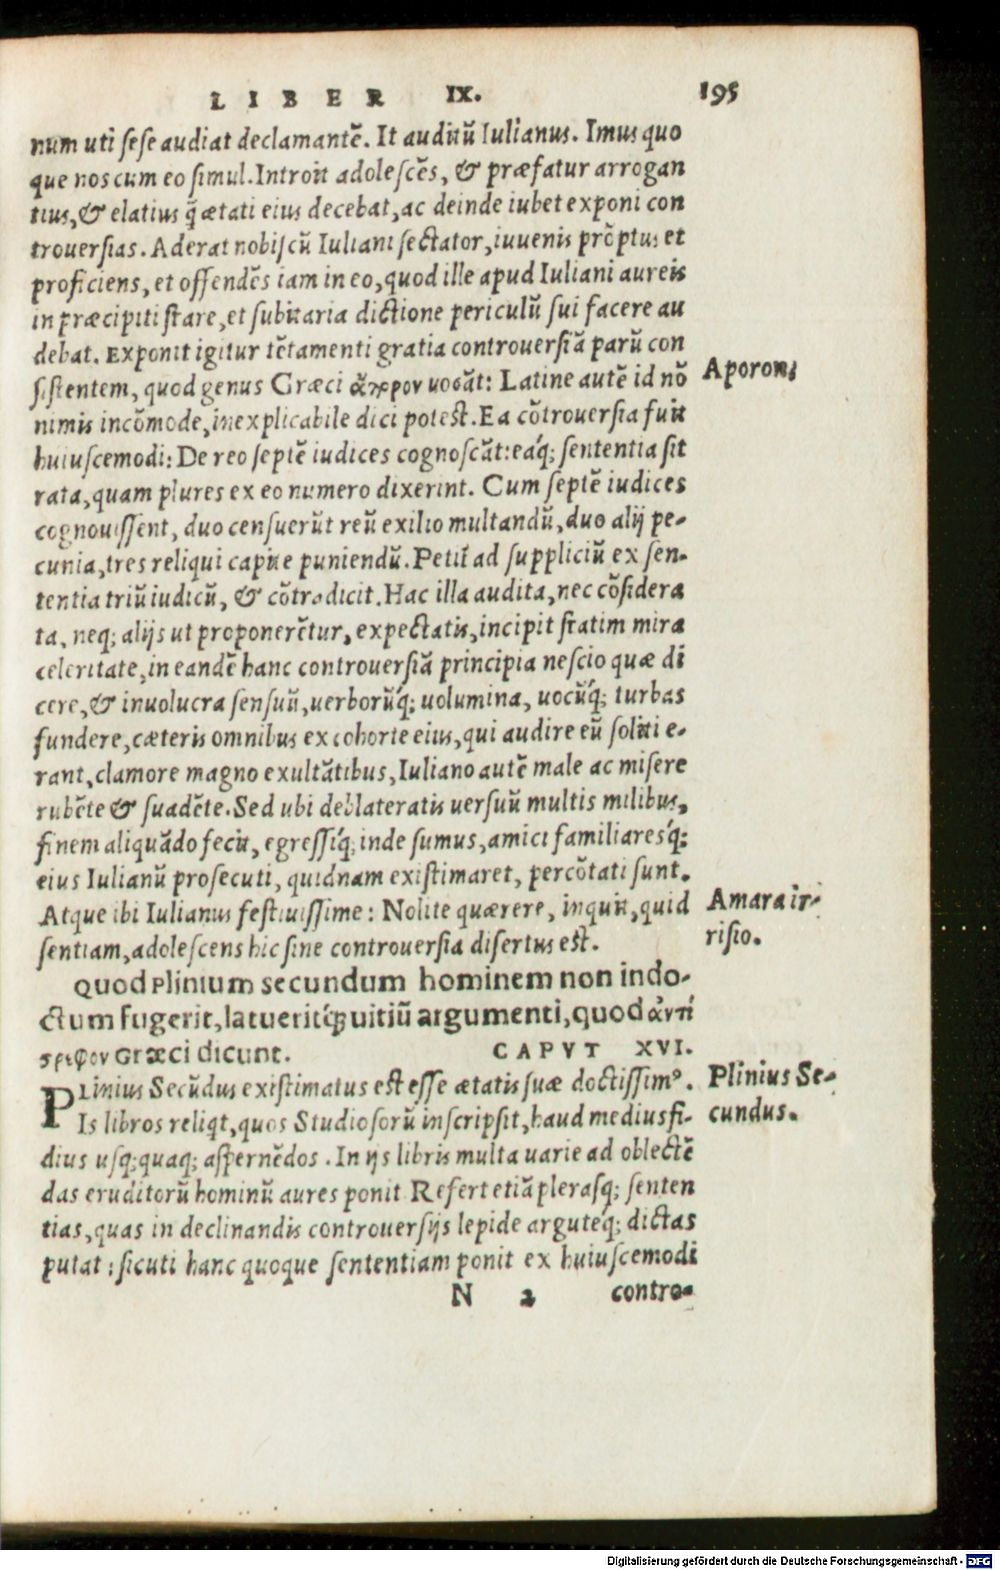 LIBER IX. 195
num uti sese audiat declamantẽ. It auditũ Iulianus. Imus quo
que nos cum eo simul. Introit adolescẽs, & præfatur arrogan
tius, & elatius q̃ ætati eius decebat, ac deinde iubet exponi con
trouersias. Aderat nobiscũ Iuliani sectator, iuuenis prõptus et
proficiens, et offendẽs iam in eo, quod ille apud Iuliani aureis
in præcipiti stare, et subitaria dictione periculũ sui facere au
debat. Exponit igitur tẽtamenti gratia controuersiã parũ con
sistentem, quod genus Græci ἄπορον uocãt: Latine autẽ id nõ
Aporon.
nimis incõmode, inexplicabile dici potest. Ea cõtrouersia fuit
huiuscemodi: De reo septẽ iudices cognoscãt: eaq́; sententia sit
rata, quam plures ex eo numero dixerint. Cum septẽ iudices
cognouissent, duo censuerũt reũ exilio multandũ, duo alij pe-
cunia, tres reliqui capite puniendũ. Petit ad suppliciũ ex sen-
tentia triũ iudicũ, & cõtradicit. Hac illa audita, nec cõsidera
ta, neq; alijs ut proponerẽtur, expectatis, incipit statim mira
celeritate, in eandẽ hanc controuersiã principia nescio quæ di
cere, & inuolucra sensuũ, uerborũq́; uolumina, uocũq́; turbas
fundere, cæteris omnibus ex cohorte eius, qui audire eũ soliti e-
rant, clamore magno exultãtibus, Iuliano autẽ male ac misere
rubẽte & suadẽte. Sed ubi deblateratis uersuũ multis milibus,
finem aliquãdo fecit, egressiq́; inde sumus, amici familiaresq́;
eius Iulianũ prosecuti, quidnam existimaret, percõtati sunt.
Atque ibi Iulianus festiuissime: Nolite quærere, inquit, quid
Amara ir-
sentiam, adolescens hic sine controuersia disertus est.
risio.
Quod Plinium secundum hominem non indo-
ctum fugerit, latueritq́; uitiũ argumenti, quod ἀντι
ϛρεφον Græci dicunt. CAPVT XVI.
PLinius Secũdus existimatus est esse ætatis suæ doctissimꝰ.
Plinius Se-
Is libros reliq̃t, quos Studiosorũ inscripsit, haud mediusfi-
cundus.
dius usq; quaq; aspernẽdos. In ijs libris multa uarie ad oblectẽ
das eruditorũ hominũ aures ponit Refert etiã plerasq; senten
tias, quas in declinandis controuersijs lepide arguteq; dictas
putat: sicuti hanc quoque sententiam ponit ex huiuscemodi
N 2 contro-
Digitalisierung gefördert durch die Deutsche Forschungsgemeinschaft - DFG